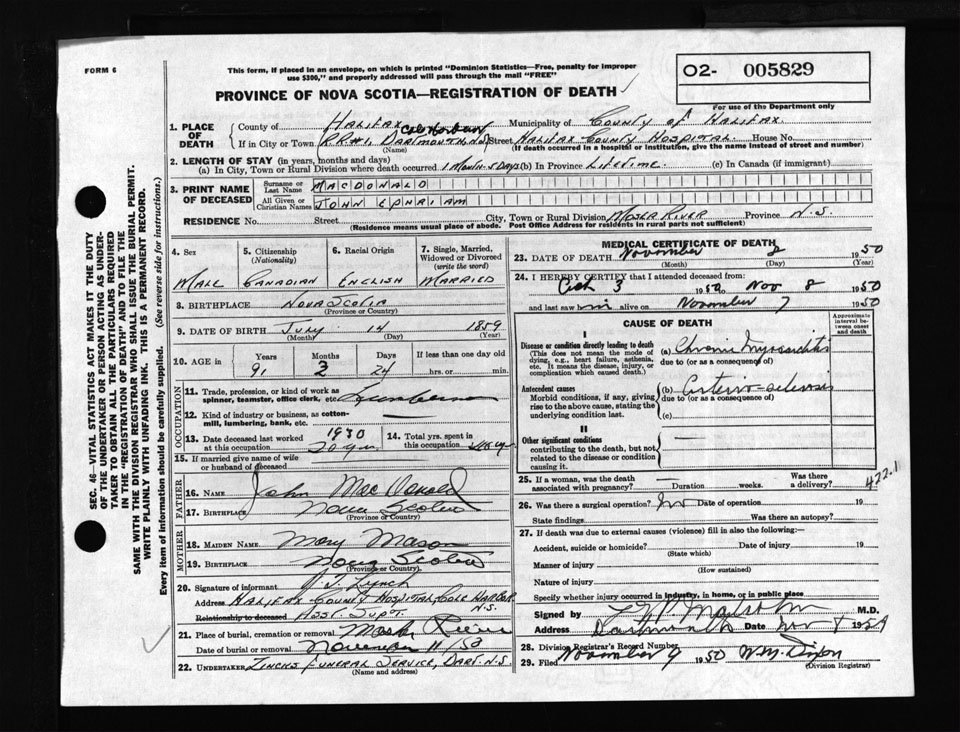 FORM 6
This form, if placed in an envelope, on which is printed "Dominion Statistics—Free, penalty for improper
use $300," and properly addressed will pass through the mail "FREE"
O2- 005829
PROVINCE OF NOVA SCOTIA—REGISTRATION OF DEATH
For use of the Department only
1. PLACE OF DEATH
County of Halifax Municipality of County of Halifax.
If in City or Town R.R#1, Dartmouth, N.S. Cole Harbour Street Halifax County Hospital. House No.
(Name) (If death occurred in a hospital or institution, give the name instead of street and number)
2. LENGTH OF STAY (in years, months and days)
(a) In City, Town or Rural Division where death occurred 1 Month-5 Days (b) In Province Lifetime. (c) In Canada (if immigrant)
3. PRINT NAME OF DECEASED
Surname or Last Name MACDONALD
All Given or Christian Names JOHN EPHRIAM
RESIDENCE No. Street City, Town or Rural Division Moser River Province N.S.
(Residence means usual place of abode. Post Office Address for residents in rural parts not sufficient)
4. Sex
5. Citizenship (Nationality)
6. Racial Origin
7. Single, Married, Widowed or Divorced (write the word)
Male Canadian English Married
8. BIRTHPLACE Nova Scotia
(Province or Country)
9. DATE OF BIRTH July 14 1859
(Month) (Day) (Year)
10. AGE in Years Months Days If less than one day old
91 3 24 hrs. or min.
OCCUPATION
11. Trade, profession, or kind of work as spinner, teamster, office clerk, etc. Lumberman
12. Kind of industry or business, as cotton-mill, lumbering, bank, etc.
13. Date deceased last worked at this occupation 1930 20 yrs.
14. Total yrs. spent in this occupation
15. If married give name of wife or husband of deceased
FATHER
16. NAME John MacDonald
17. BIRTHPLACE Nova Scotia
(Province or Country)
MOTHER
18. MAIDEN NAME Mary Mason
19. BIRTHPLACE Nova Scotia
(Province or Country)
20. Signature of informant J. Lynch
Address Halifax County Hospital, Cole Harbor N.S.
Relationship to deceased Asst. Supt.
21. Place of burial, cremation or removal Moser River
Date of burial or removal November 11/50
22. UNDERTAKER Zinck's Funeral Service, Dart. N.S.
(Name and address)
MEDICAL CERTIFICATE OF DEATH
23. DATE OF DEATH November 8 1950
(Month) (Day) (Year)
24. I HEREBY CERTIFY that I attended deceased from
Oct 3 1950 Nov 8 1950
and last saw him alive on November 7 1950
CAUSE OF DEATH
Approximate interval between onset and death
I
Disease or condition directly leading to death
(This does not mean the mode of dying, e.g., heart failure, asthenia, etc. It means the disease, injury, or complication which caused death.)
(a) Chronic Myocarditis
due to (or as a consequence of)
Antecedent causes
Morbid conditions, if any, giving rise to the above cause, stating the underlying condition last.
(b) Arterio-sclerosis
due to (or as a consequence of)
(c)
II
Other significant conditions
contributing to the death, but not related to the disease or condition causing it.
25. If a woman, was the death associated with pregnancy? — Duration weeks. Was there a delivery?
422.1
26. Was there a surgical operation? No Date of operation 19
State findings Was there an autopsy?
27. If death was due to external causes (violence) fill in also the following:—
Accident, suicide or homicide? Date of injury 19
(State which)
Manner of injury
(How sustained)
Nature of injury
Specify whether injury occurred in industry, in home, or in public place
Signed by Malcolm M.D.
Address Dartmouth Date Nov 8 1950
28. Division Registrar's Record Number
29. Filed November 9 1950 W.M. Dixon
(Division Registrar)
SEC. 46—VITAL STATISTICS ACT MAKES IT THE DUTY
OF THE UNDERTAKER OR PERSON ACTING AS UNDER-
TAKER TO OBTAIN ALL THE PARTICULARS REQUIRED
IN THE "REGISTRATION OF DEATH" AND TO FILE THE
SAME WITH THE DIVISION REGISTRAR WHO SHALL ISSUE THE BURIAL PERMIT.
WRITE PLAINLY WITH UNFADING INK. THIS IS A PERMANENT RECORD.
Every item of information should be carefully supplied. (See reverse side for instructions.)